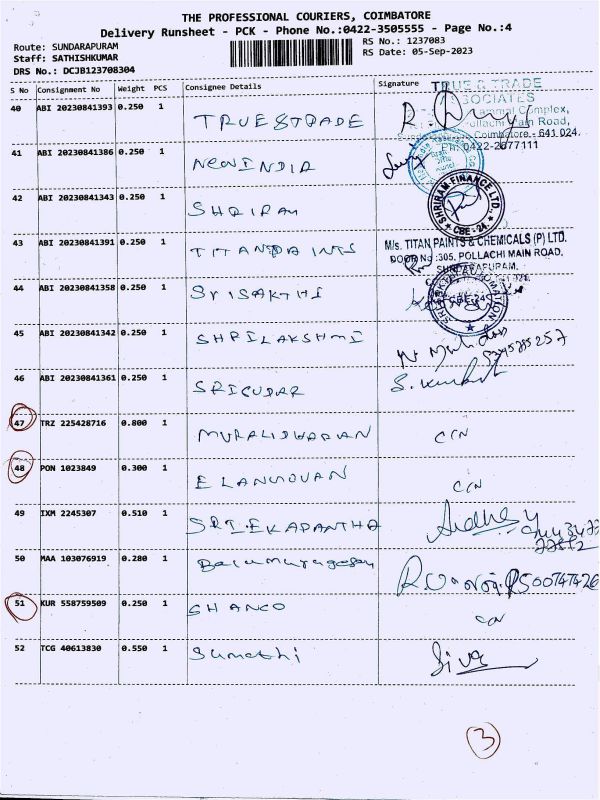 THE PROFESSIONAL COURIERS, COIMBATORE
Delivery Runsheet - PCK - Phone No.:0422-3505555 - Page No.:4
Route: SUNDARAPURAM RS No.: 1237083
Staff: SATHISHKUMAR RS Date: 05-Sep-2023
DRS No.: DCJB123708304
S No Consignment No Weight PCS Consignee Details Signature
TRUE & TRADE
ASSOCIATES
Complex,
40 ABI 20230841393 0.250 1 TRUE&TRADE
Pollachi Main Road,
Coimbatore - 641 024.
Ph: 0422-2677111
41 ABI 20230841386 0.250 1 NEWINDIA
42 ABI 20230841343 0.250 1 SHRIRAM
SHRIRAM FINANCE LTD. CBE-24
43 ABI 20230841391 0.250 1 TITANPAINTS
M/s. TITAN PAINTS & CHEMICALS (P) LTD.
DOOR No :305, POLLACHI MAIN ROAD,
SUNDARAPURAM,
44 ABI 20230841358 0.250 1 SriSAKTHI
CBE-24
45 ABI 20230841342 0.250 1 SHRILAKSHMI
46 ABI 20230841361 0.250 1 SRIGUDAR
47 TRZ 225428716 0.800 1 MURALIDHARAN C/N
48 PON 1023849 0.300 1 ELANGOVAN C/N
49 IXM 2245307 0.510 1 SRIEKADANTHA
50 MAA 103076919 0.280 1 Balamurugesan
51 KUR 558759509 0.250 1 SHANCO C/N
52 TCG 40613830 0.550 1 Sumathi Siva
3